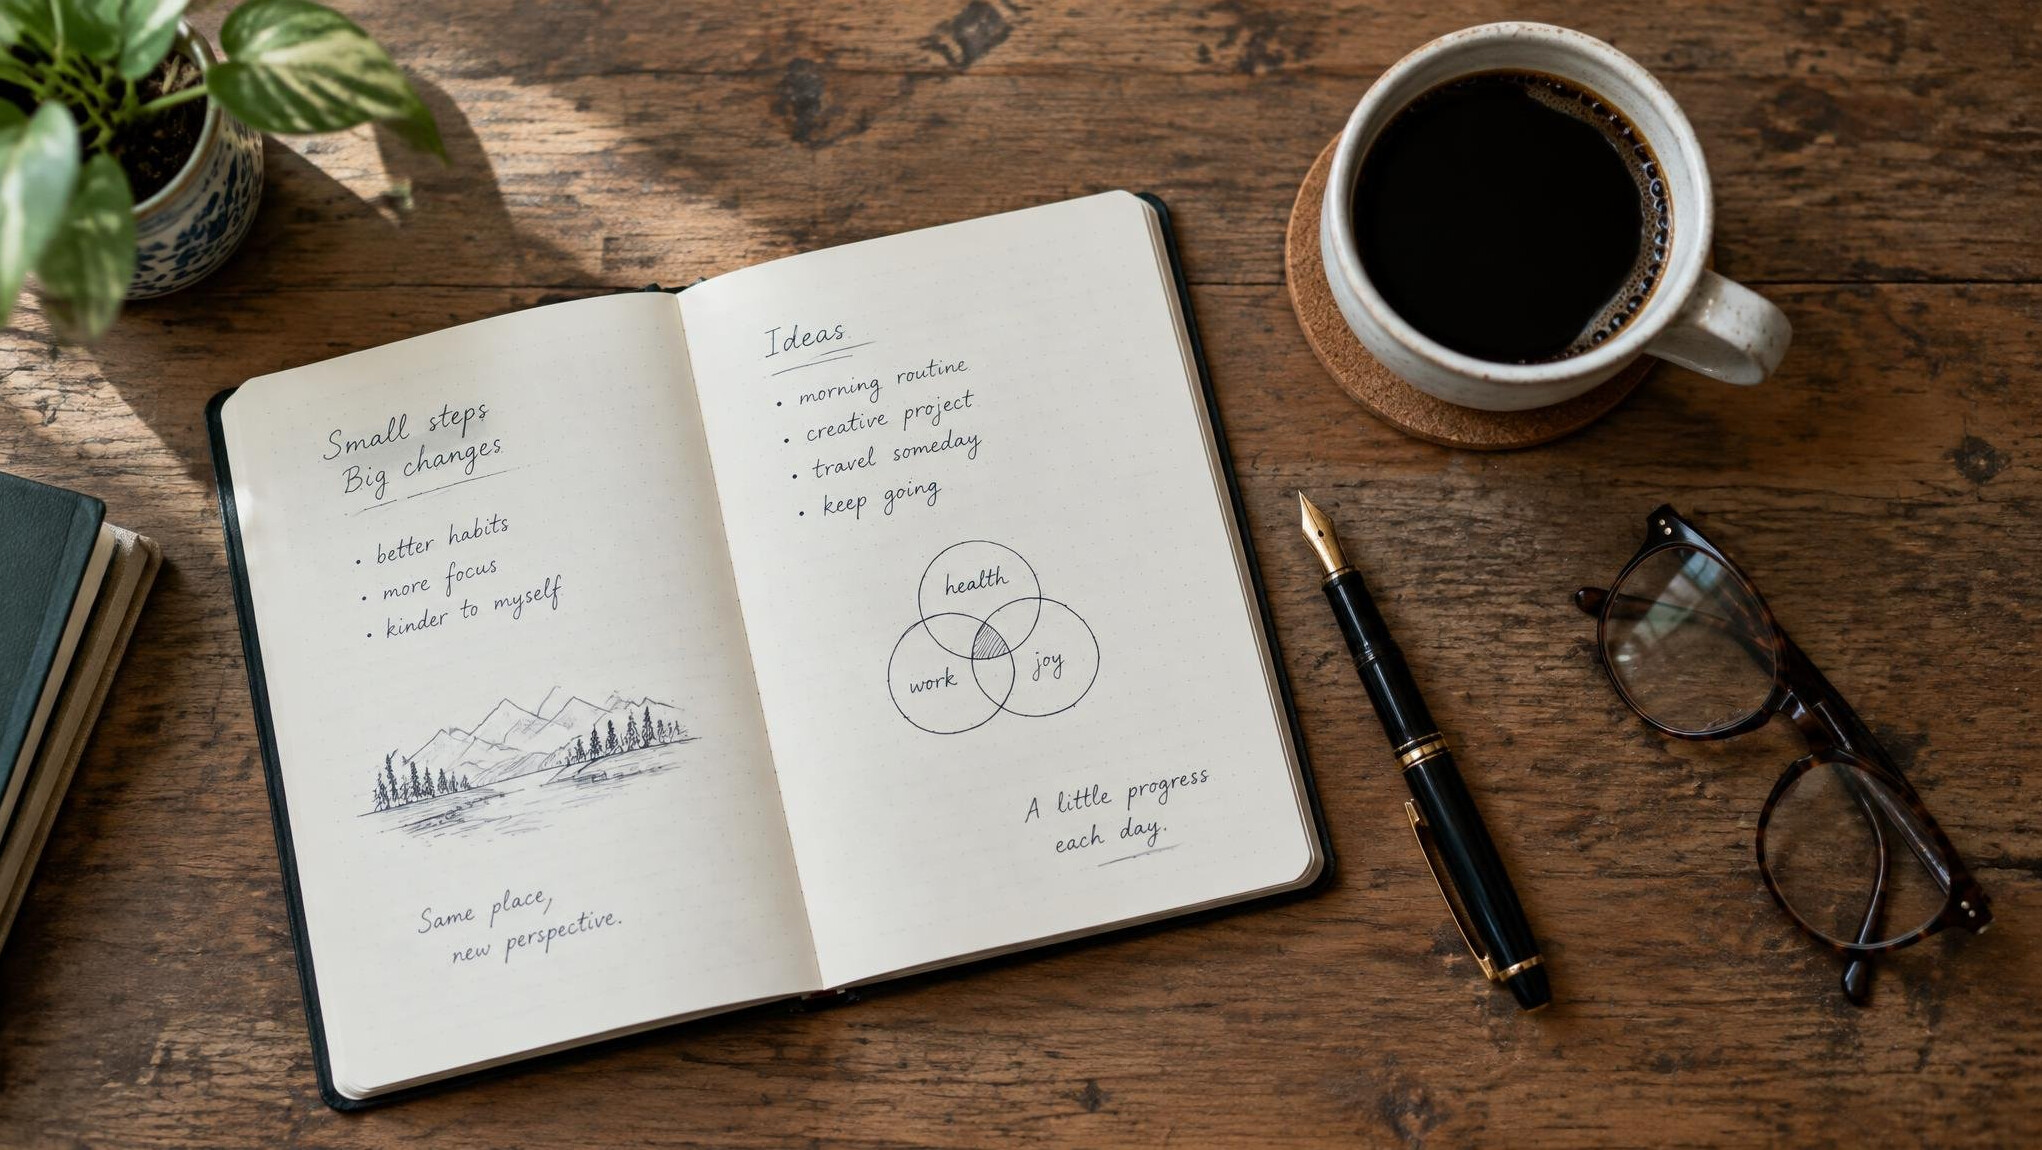 Small steps
Big changes
• better habits
• more focus
• kinder to myself
Same place,
new perspective.
Ideas
• morning routine
• creative project
• travel someday
• keep going
health
work
joy
A little progress
each day.